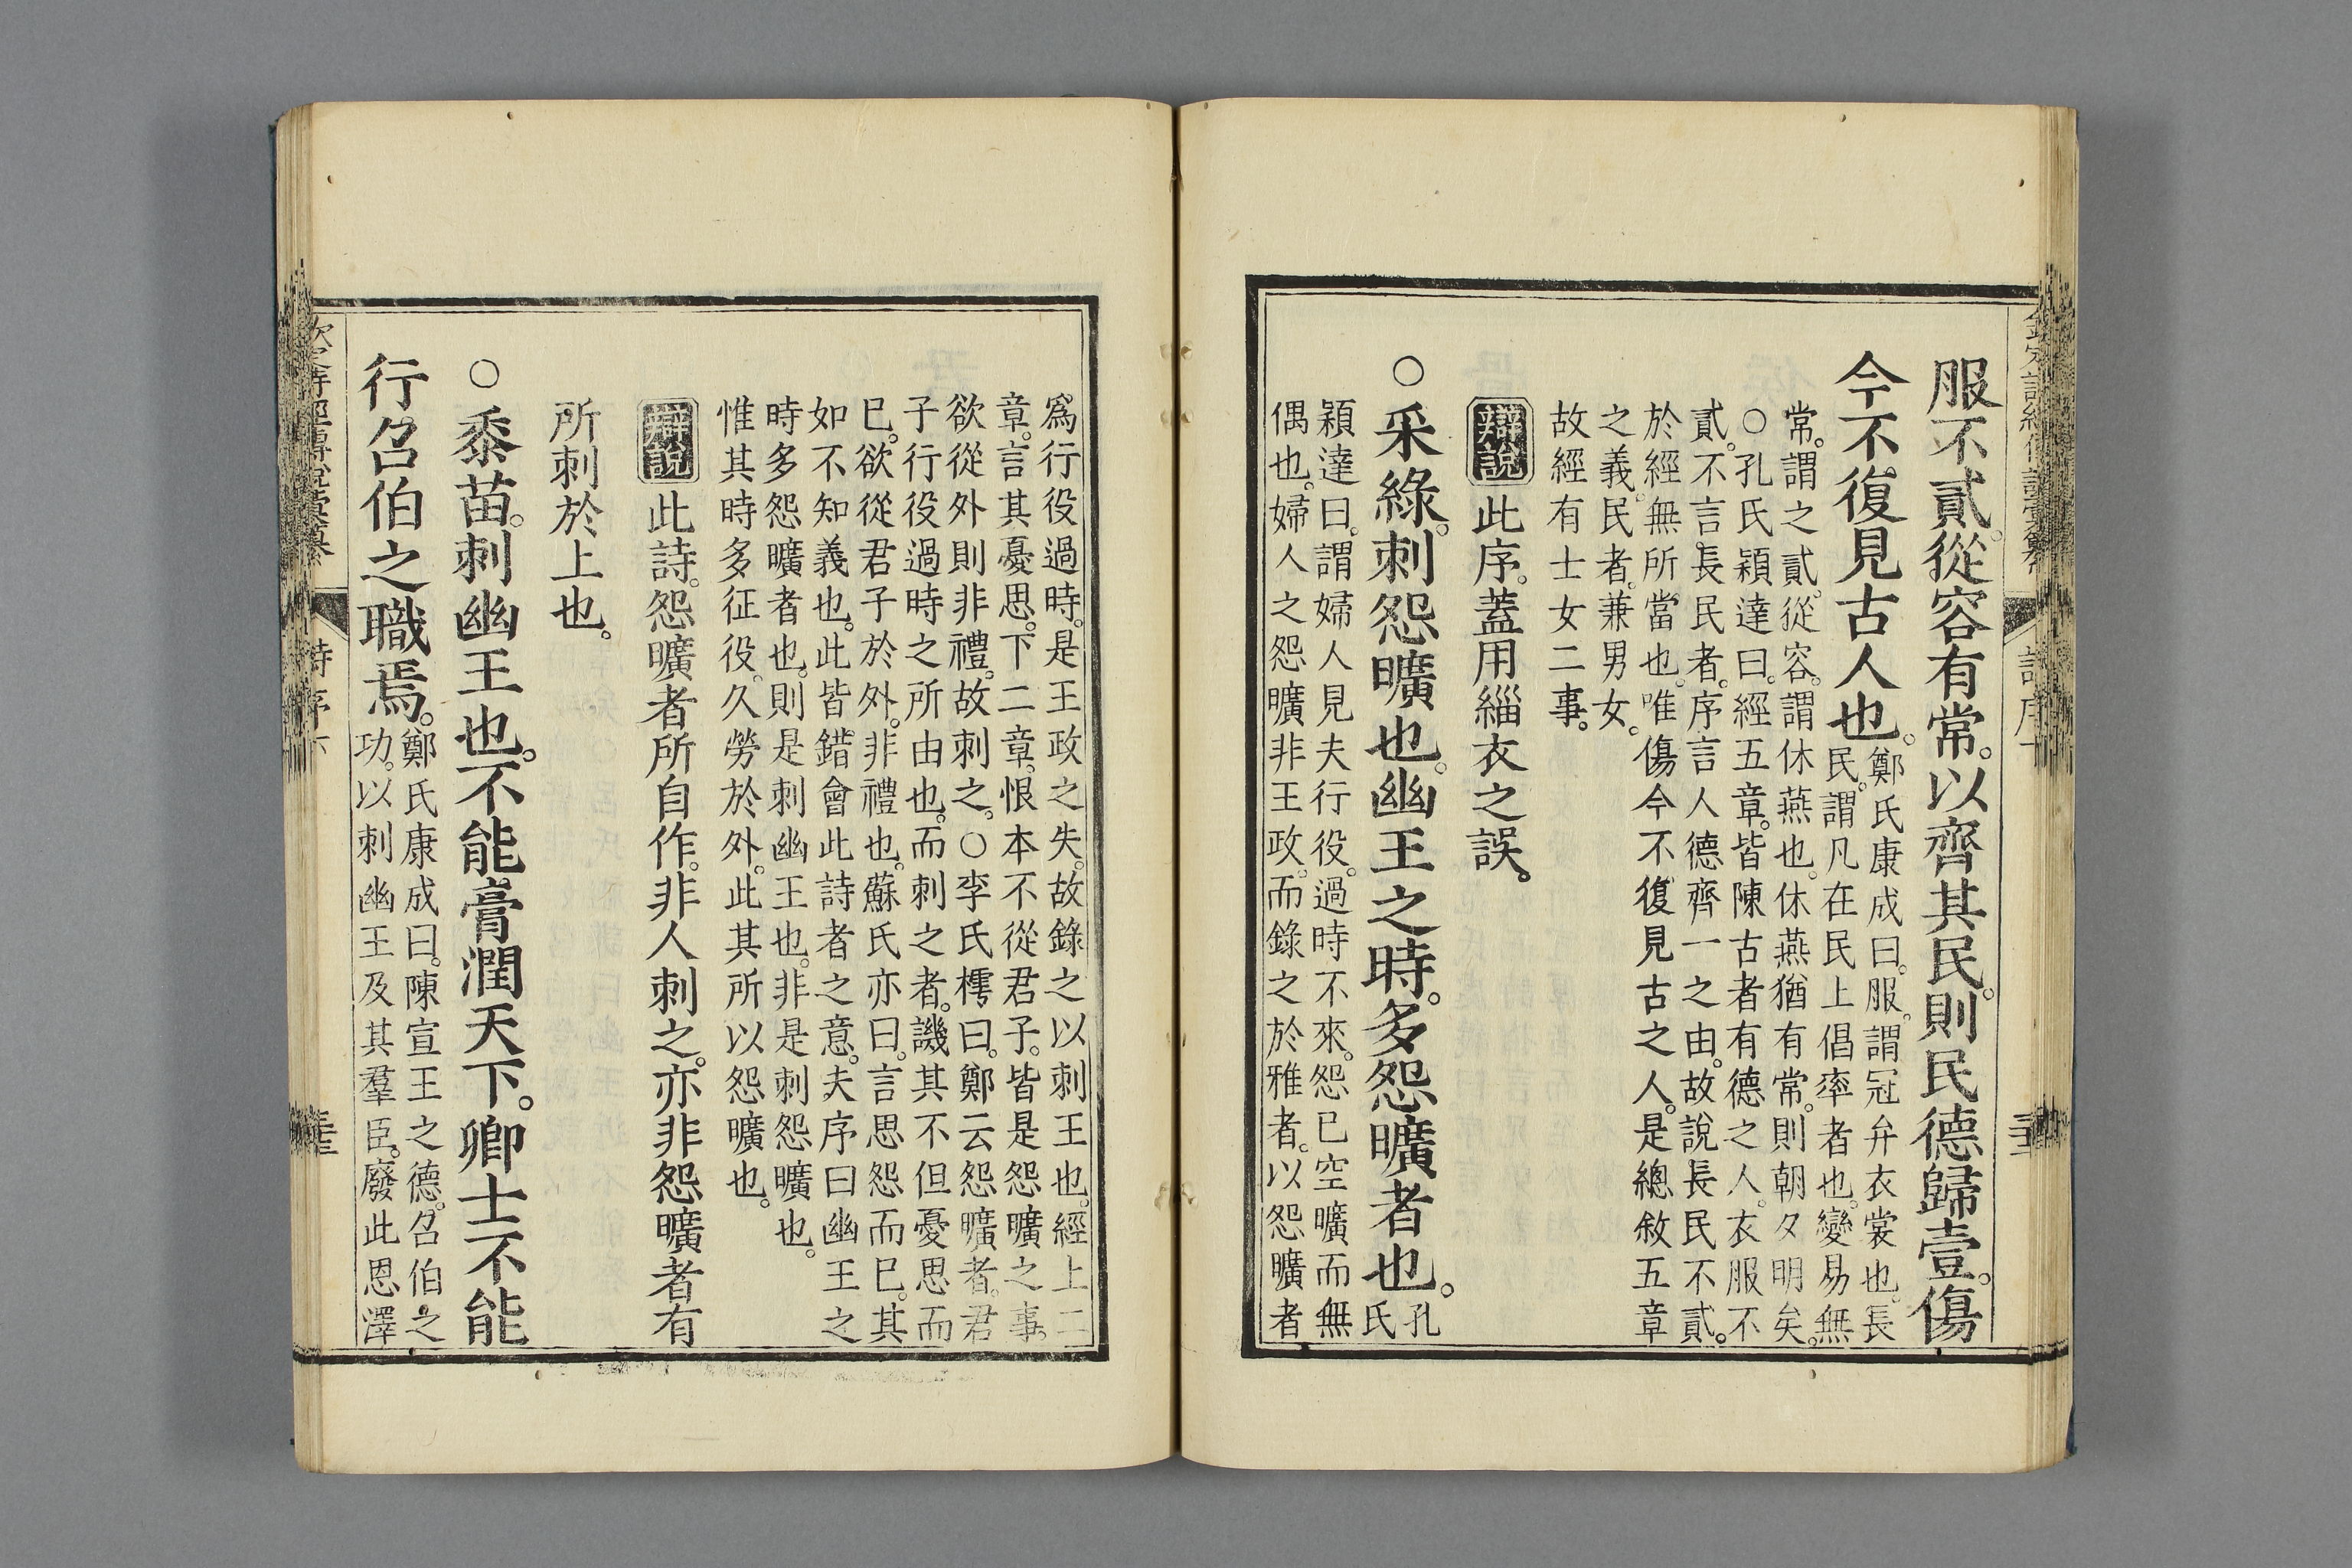 服不貳。從容有常。以齊其民。則民德歸壹。傷
今不復見古人也。
鄭氏康成曰。服。謂冠弁衣裳也。長
民。謂凡在民上倡率者也。變易無
常。謂之貳。從容。謂休燕也。休燕猶有常。則朝夕明矣。
○孔氏穎達曰。經五章。皆陳古者有德之人。衣服不
貳。不言長民者。序言人德齊一之由。故說長民不貳。
於經無所當也。唯傷今不復見古之人。是總敘五章
之義。民者。兼男女。
故經有士女二事。
辯說 此序。蓋用緇衣之誤。
○采綠。刺怨曠也。幽王之時。多怨曠者也。
孔
氏
穎達曰。謂婦人見夫行役。過時不來。怨已空曠而無
偶也。婦人之怨曠非王政。而錄之於雅者。以怨曠者
為行役過時。是王政之失。故錄之以刺王也。經上二
章。言其憂思。下二章。恨本不從君子。皆是怨曠之事。
欲從外則非禮。故刺之。○李氏樗曰。鄭云怨曠者。君
子行役過時之所由也。而刺之者。譏其不但憂思而
已。欲從君子於外。非禮也。蘇氏亦曰。言思怨而已。其
如不知義也。此皆錯會此詩者之意。夫序曰幽王之
時多怨曠者也。則是刺幽王也。非是刺怨曠也。
惟其時多征役。久勞於外。此其所以怨曠也。
辯說 此詩。怨曠者所自作。非人刺之。亦非怨曠者有
所刺於上也。
○黍苗。刺幽王也。不能膏潤天下。卿士不能
行召伯之職焉。
鄭氏康成曰。陳宣王之德。召伯之
功。以刺幽王及其羣臣。廢此恩澤